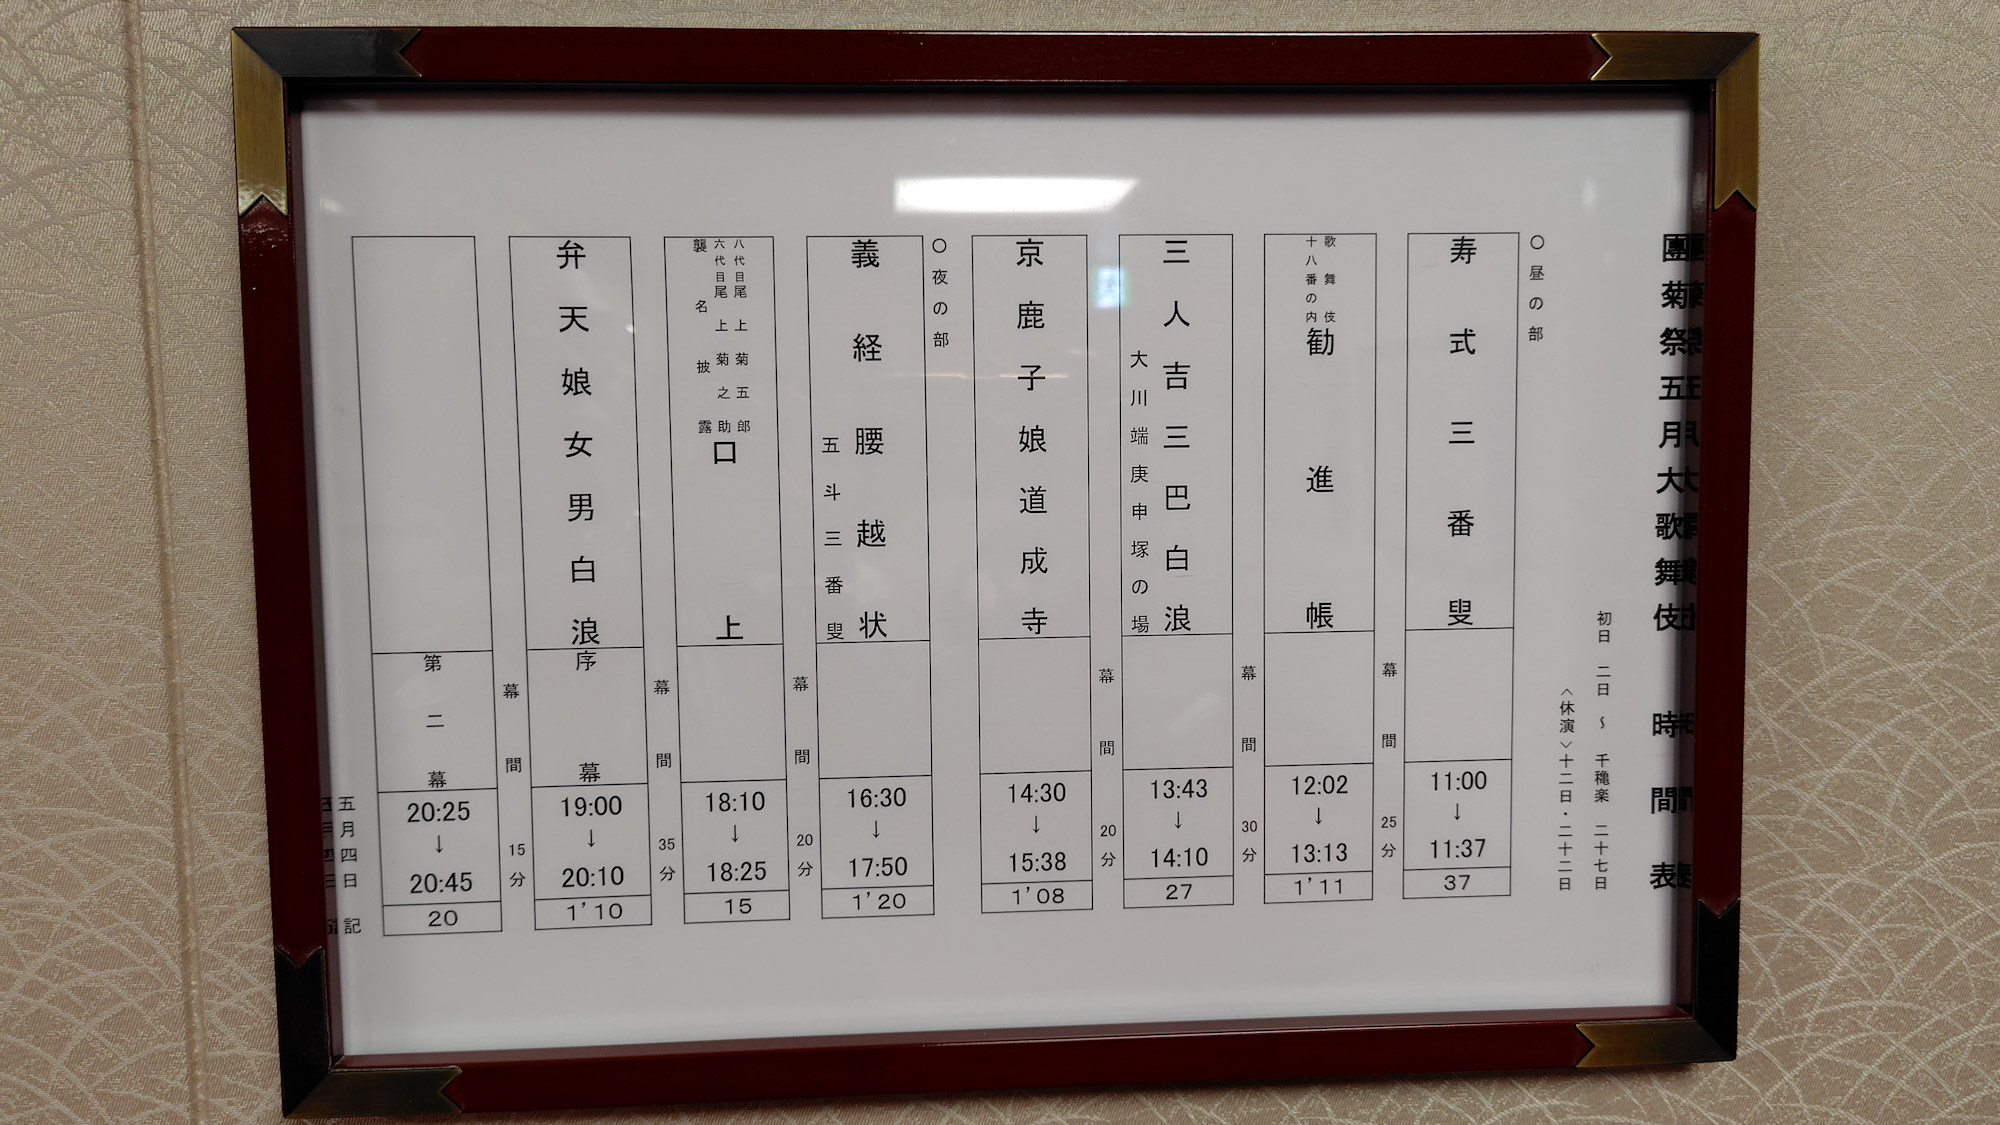 團菊祭五月大歌舞伎 時間表
初日 二日 ～ 千穐楽 二十七日
＜休演＞十二日・二十二日
〇昼の部
寿式三番叟
11:00
↓
11:37
37
幕間
25分
歌舞伎
十八番の内
勧進帳
12:02
↓
13:13
1'11
幕間
30分
三人吉三巴白浪
大川端庚申塚の場
13:43
↓
14:10
27
幕間
20分
京鹿子娘道成寺
14:30
↓
15:38
1'08
〇夜の部
義経腰越状
五斗三番叟
16:30
↓
17:50
1'20
幕間
20分
八代目尾上菊五郎
六代目尾上菊之助
襲名披露
口上
18:10
↓
18:25
15
幕間
35分
弁天娘女男白浪
序幕
19:00
↓
20:10
1'10
幕間
15分
第二幕
20:25
↓
20:45
20
五月四日 記